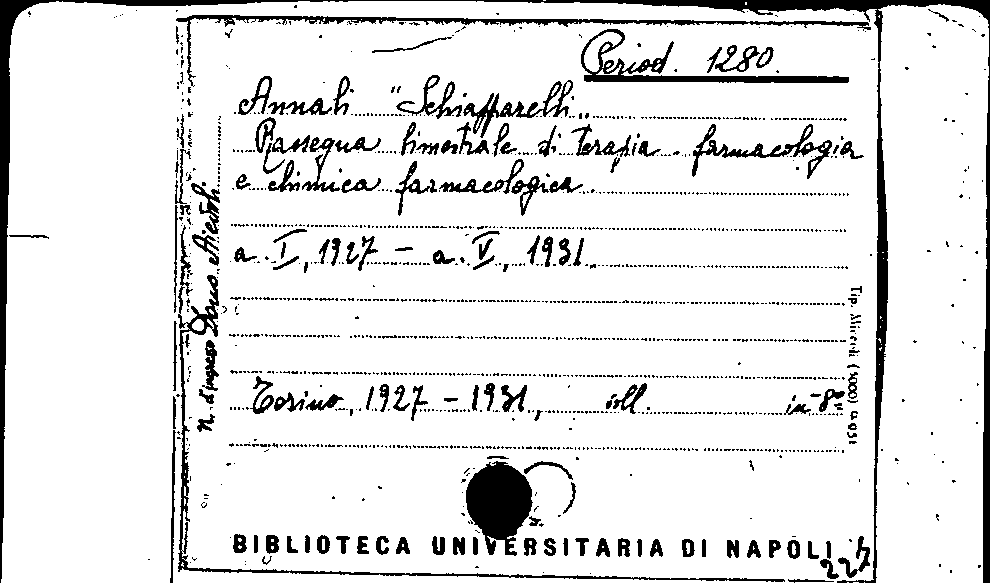 Period. 1280
Annali "Schiapparelli"
Rassegna bimestrale di terapia. farmacologia
e chimica farmacologica.
a. I, 1927 - a. V, 1931.
Torino, 1927 - 1931, ill. in-8°
N. d'ingresso Dono
Tip. (5000)
BIBLIOTECA UNIVERSITARIA DI NAPOLI